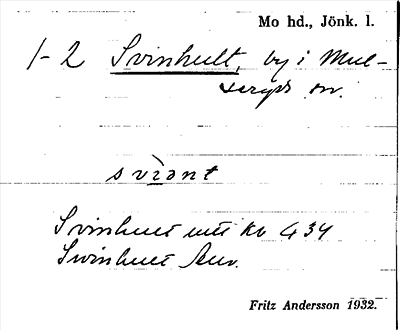 Mo hd., Jönk. l.
1-2 Svinhult, by i Mul-
seryds sn.
svìənt
Svinhult utt kb 434
Svinhult Auv.
Fritz Andersson 1932.